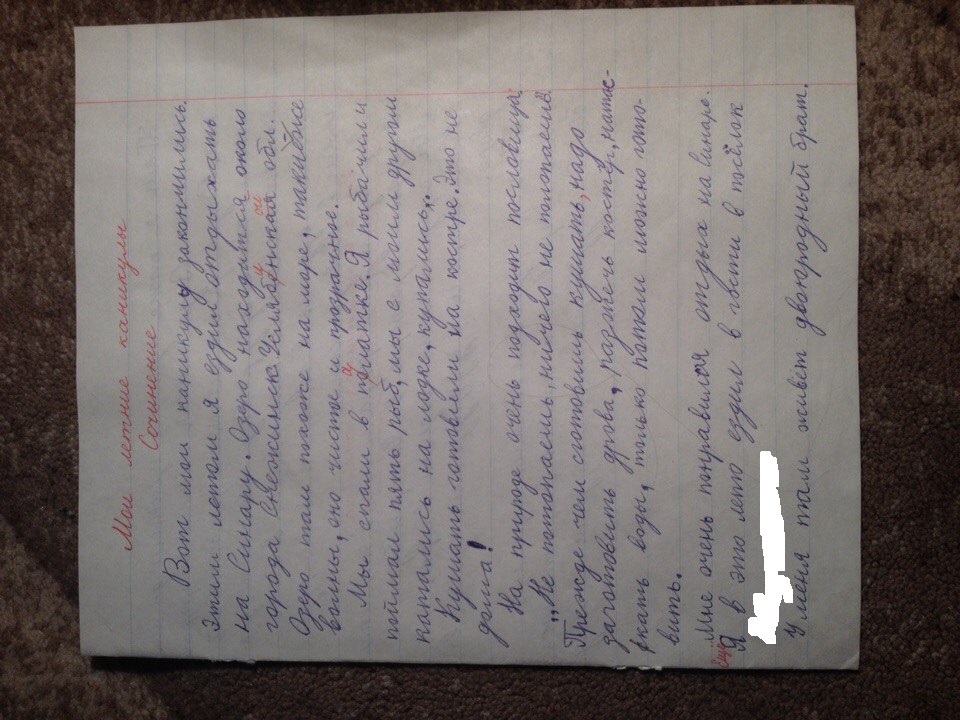 Мои летние каникулы
Сочинение
Вот мои каникулы закончились.
Этим летом я ездил отдыхать
на Синару. Озеро находится около
города Снежинск Челябинской обл.
Озеро там похоже на море, такие же
волны, оно чистое и прозрачное.
Мы спали в палатке. Я рыбачил и
поймал пять рыб, мы с моим другом
катались на лодке, купались,.
Кушать готовили на костре. Это не
дома!
На природе очень подходит пословица:
„Не потопаешь, ничего не полопаешь.
Прежде чем готовить кушать, надо
заготовить дрова, разжечь костёр, натас-
кать воды, только потом можно гото-
вить.
Мне очень понравился отдых на Синаре.
Ещё Я в это лето ездил в гости в посёлок
У меня там живёт двоюродный брат.